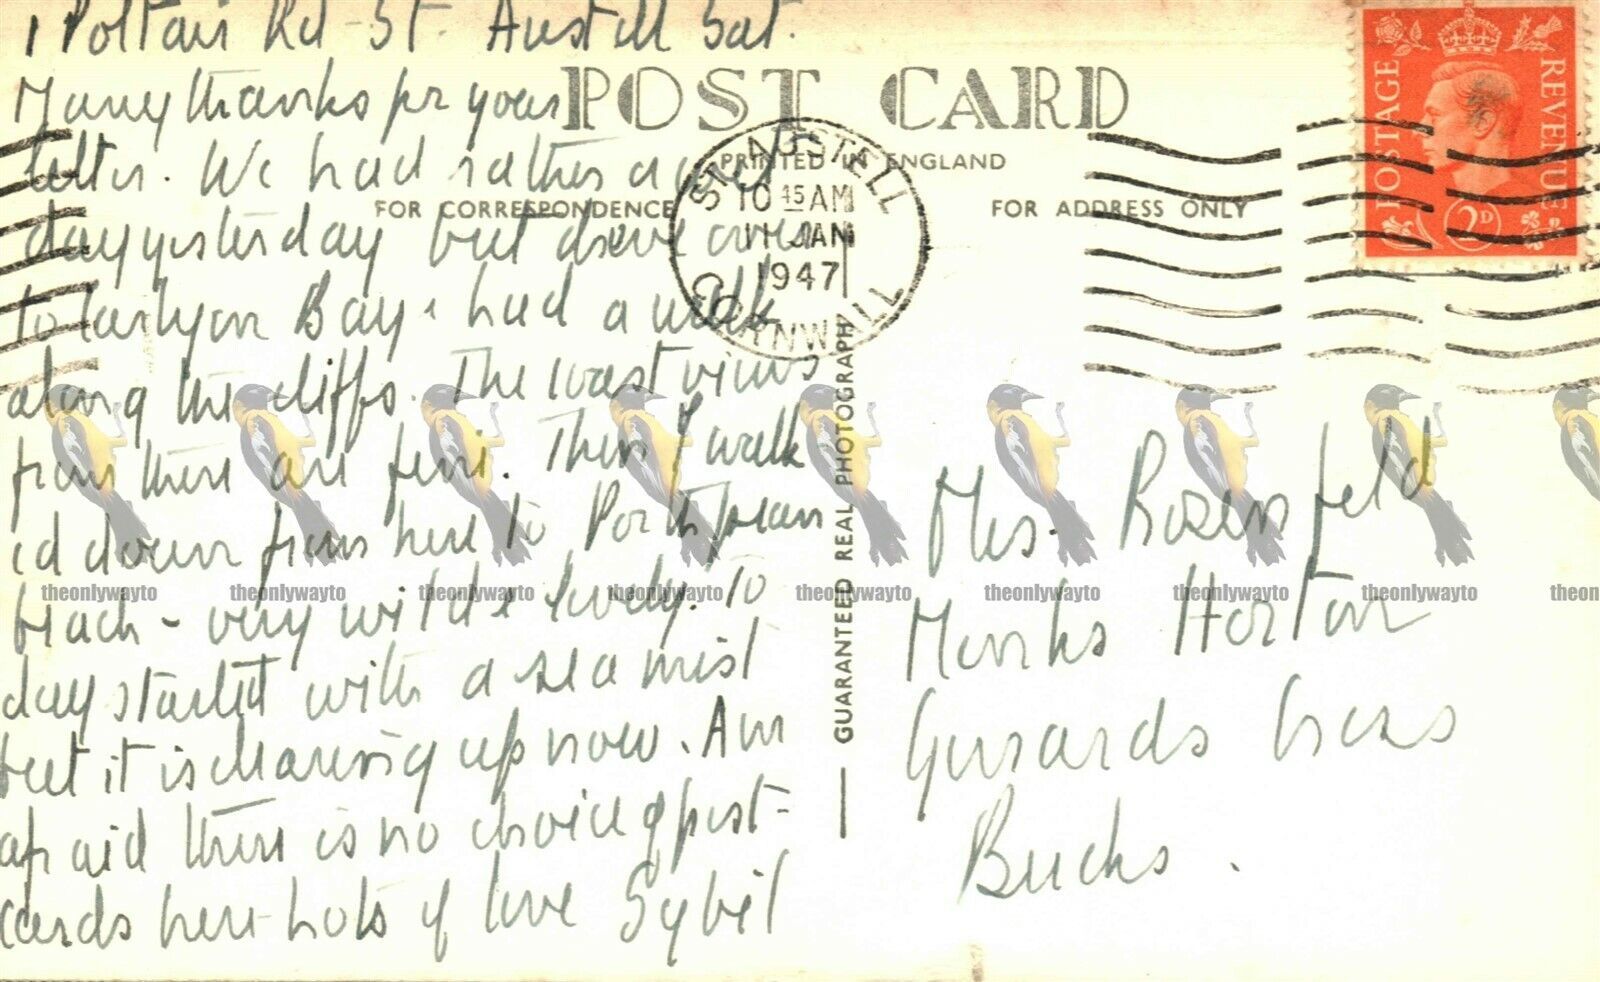 1 Poltair Rd - St. Austell Sat.
Many thanks for your
letter. We had rather a wet
day yesterday but drove over
to Carlyon Bay & had a walk
along the cliffs. The coast views
from there are fine. Then I walk
ed down from here to Porthpean
beach - very wild & lovely. To
day started with a sea mist
but it is clearing up now. Am
afraid there is no choice of post-
cards here - Lots of love Sybil
POST CARD
PRINTED IN ENGLAND
FOR CORRESPONDENCE
FOR ADDRESS ONLY
ST. AUSTELL
10 45 AM
11 JAN
1947
CORNWALL
POSTAGE
REVENUE
2D
GUARANTEED REAL PHOTOGRAPH
Mrs. Rosenfeld
Monks Horton
Gerrards Cross
Bucks.
theonlywayto theonlywayto theonlywayto theonlywayto theonlywayto theonlywayto theonlywayto theonlywayto theon